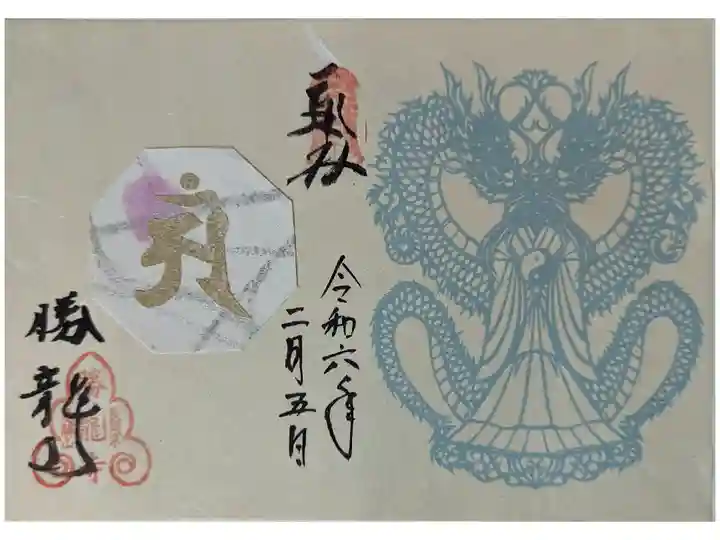 奉拝
令和六年
二月五日
勝龍寺